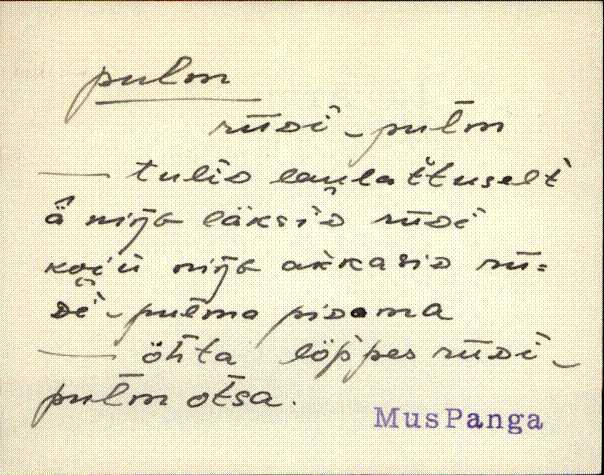 pulm
rüᴅi‿pulm
— tuliᴅ laulattuselt
ä niŋᴃ läksiᴅ rüᴅi
niŋᴃ akkasiᴅ rü=
pulma piᴅama
— õhta lõppes rüᴅi‿
pulm otsa.
MusPanga